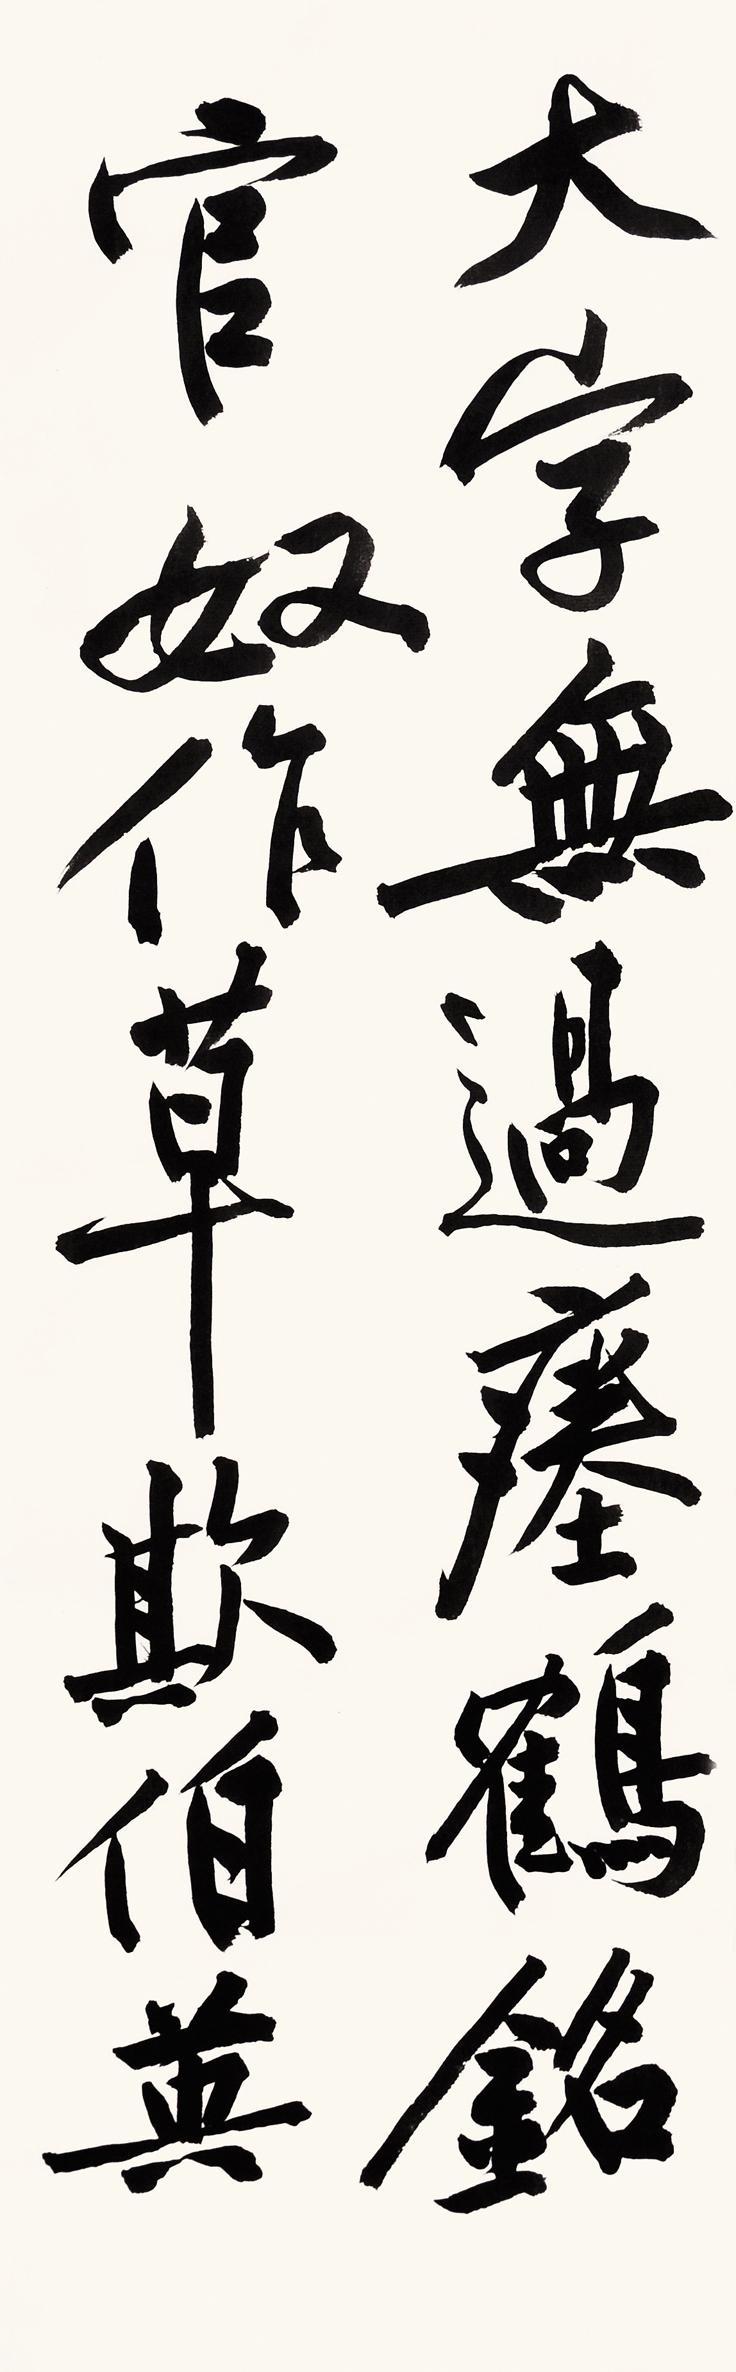 大字無過瘞鶴銘
官奴作草欺伯英